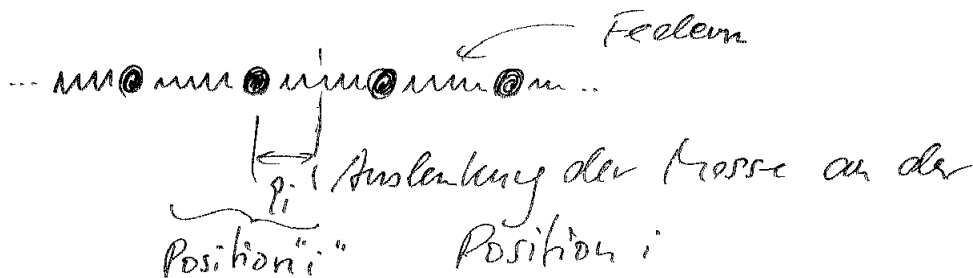 Federn
... ...
qi ! Auslenkung der Masse an der
Position "i" Position i